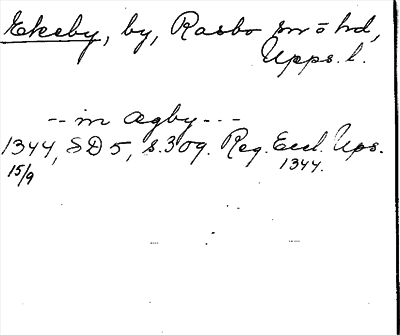 Ekeby, by, Rasbo sn o hd,
Upps. l.
-- in ægby ---
1344, SD 5, s. 309. Reg. Eccl. Ups.
15/9 1344.